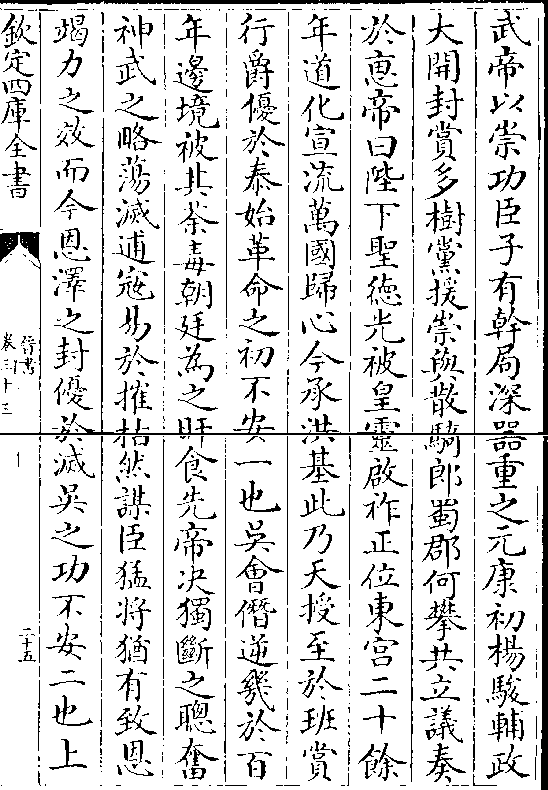 武帝以崇功臣子有幹局深器重之元康初楊駿輔政
大開封賞多樹黨援崇與散騎郎蜀郡何攀共立議奏
於惠帝曰陛下聖徳光被皇靈啟祚正位東宫二十餘
年道化宣流萬國歸心今承洪基此乃天授至於班賞
行爵優於泰始革命之初不安一也吳會僭逆幾於百
年邊境被其荼毒朝廷為之旰食先帝決獨斷之聰奮
神武之略蕩滅逋寇易於摧枯然謀臣猛將猶有致思
竭力之效而今恩澤之封優於滅吳之功不安二也上
欽定四庫全書
晉書
卷三十三
二十五